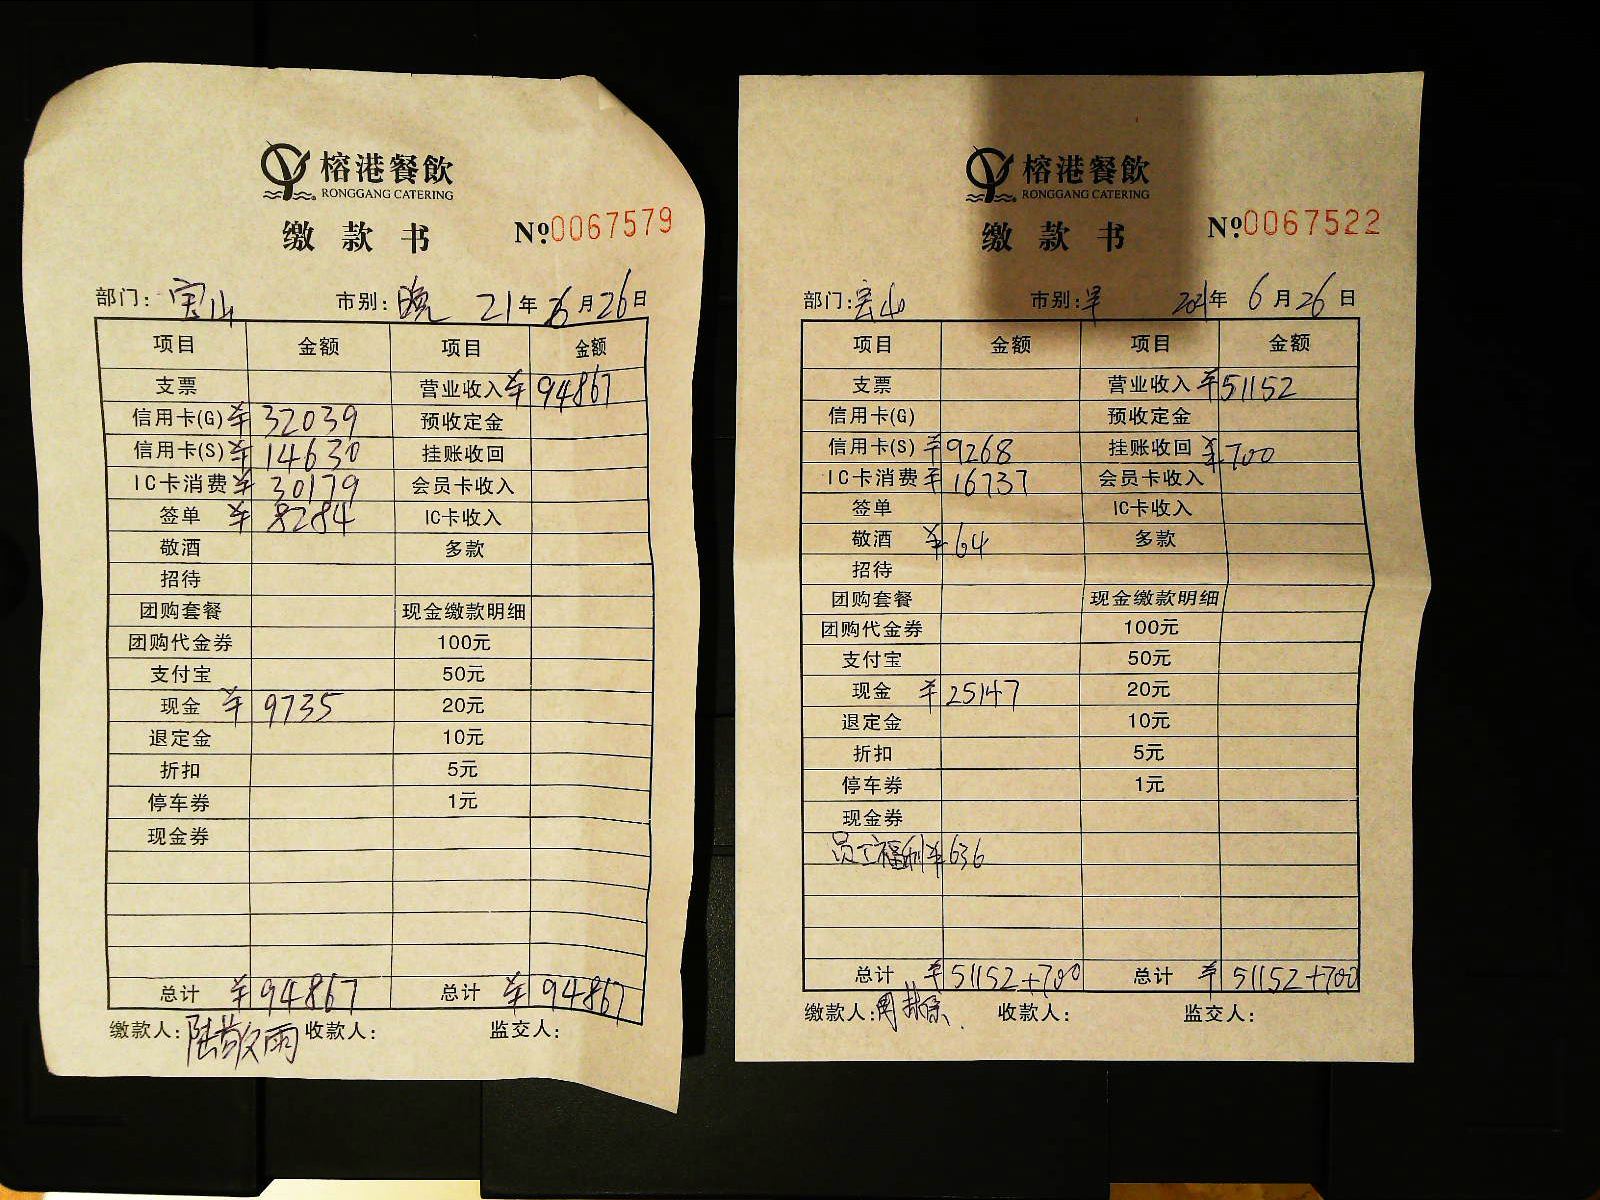 榕港餐飲
RONGGANG CATERING
缴款书 №0067579
部门：宝山 市别：晚 21年6月26日
项目 金额 项目 金额
支票 营业收入 ¥94867
信用卡(G) ¥32039 预收定金
信用卡(S) ¥14630 挂账收回
IC卡消费 ¥30179 会员卡收入
签单 ¥8284 IC卡收入
敬酒 多款
招待
团购套餐 现金缴款明细
团购代金券 100元
支付宝 50元
现金 ¥9735 20元
退定金 10元
折扣 5元
停车券 1元
现金券
总计 ¥94867 总计 ¥94867
缴款人：陆敬雨 收款人： 监交人：
榕港餐飲
RONGGANG CATERING
缴款书 №0067522
部门：宝山 市别：早 2021年6月26日
项目 金额 项目 金额
支票 营业收入 ¥51152
信用卡(G) 预收定金
信用卡(S) ¥9268 挂账收回 ¥700
IC卡消费 ¥16737 会员卡收入
签单 IC卡收入
敬酒 ¥64 多款
招待
团购套餐 现金缴款明细
团购代金券 100元
支付宝 50元
现金 ¥25147 20元
退定金 10元
折扣 5元
停车券 1元
现金券
员工福利 ¥636
总计 ¥51152+700 总计 ¥51152+700
缴款人：周 收款人： 监交人：